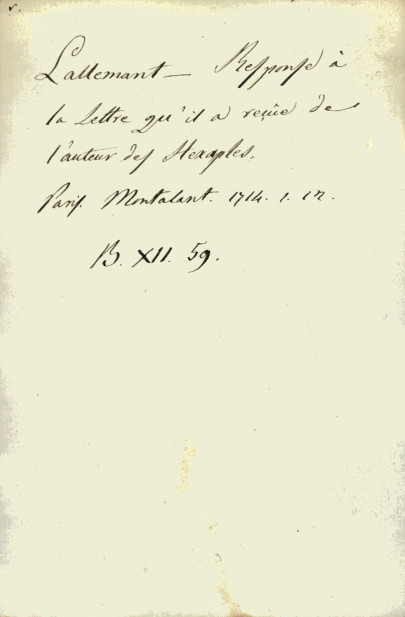 Lallemant — Response à
la Lettre qu'il a reçüe de
l'auteur des Hexaples.
Paris. Montalant. 1714. 1. 12.
B. XII. 59.